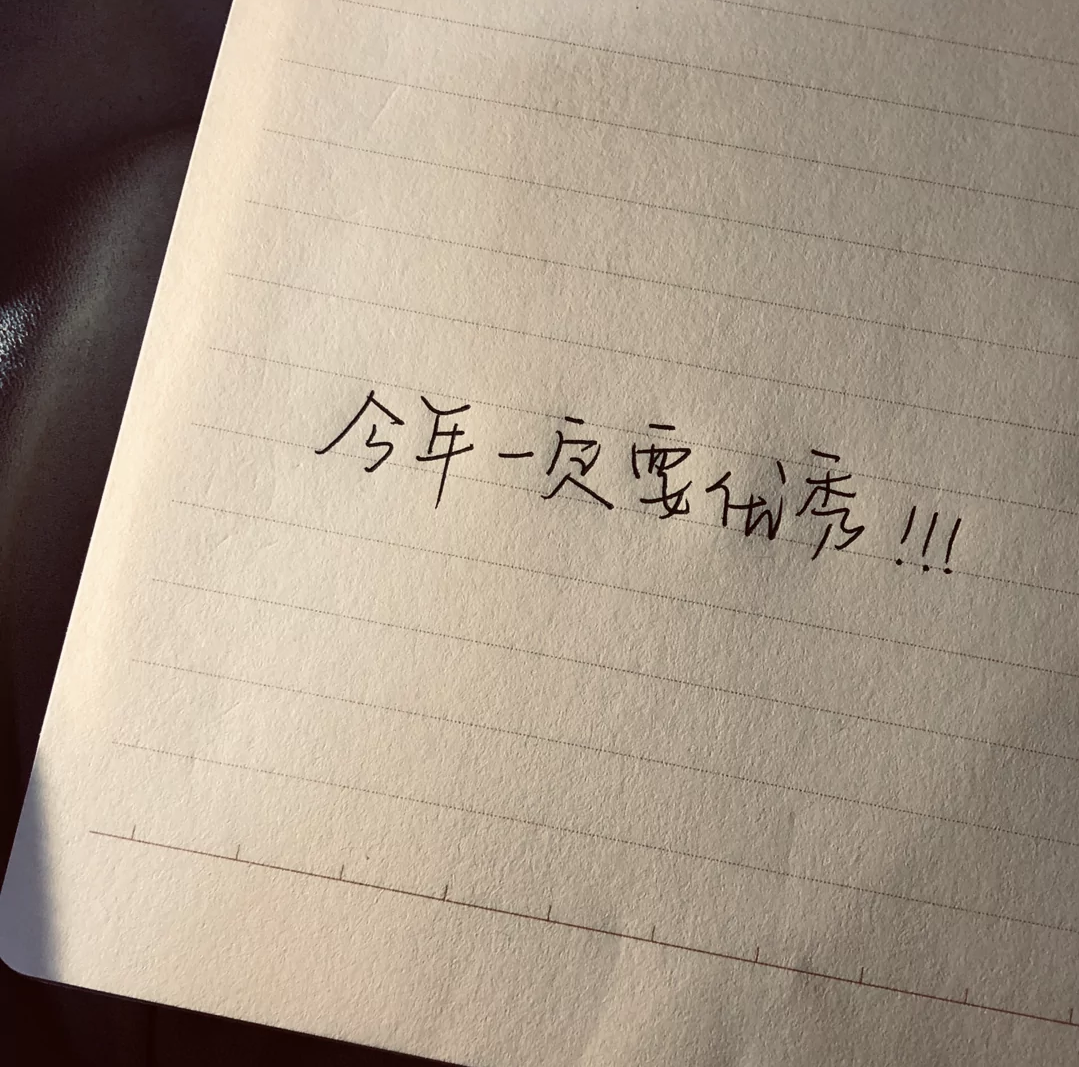 今年一定要优秀!!!